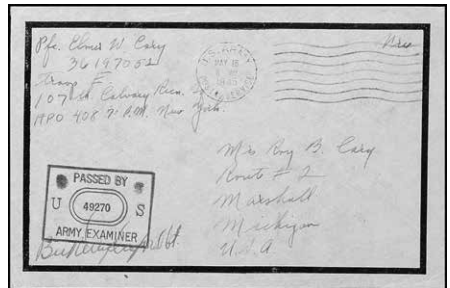 Pfc. Elmer W Cary
36197052
Troop F
107th Calvary Recn.
APO 408 P.M. New York.
U.S. ARMY
MAY
POSTAL SERVICE
Free
Mrs Roy B. Cary
Route # 2
Marshall
Michigan
U.S.A
PASSED BY
U 49270 S
ARMY EXAMINER